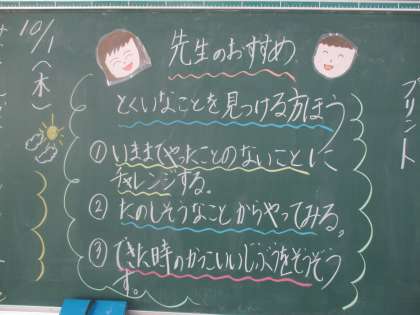 10/1
(木)
先生のおすすめ
とくいなことを見つける方ほう
① いままでやったことのないことに
チャレンジする。
② たのしそうなことからやってみる。
③ できた時のかっこいいじぶうをそうぞう
す。
プリント